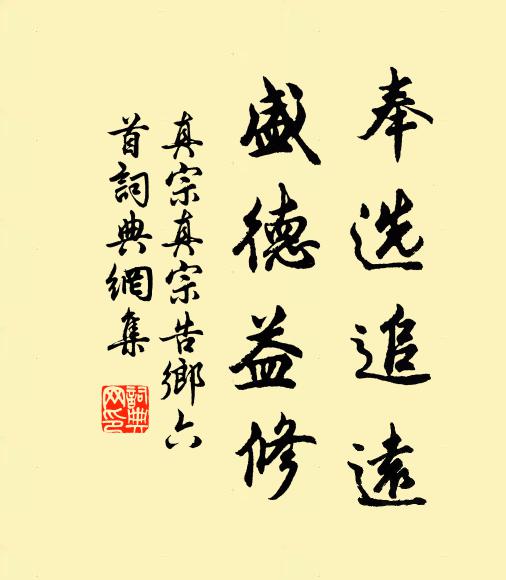 奉选追遠
盛德益修
真宗真宗告鄉六
首詞典網集
詞典
网印